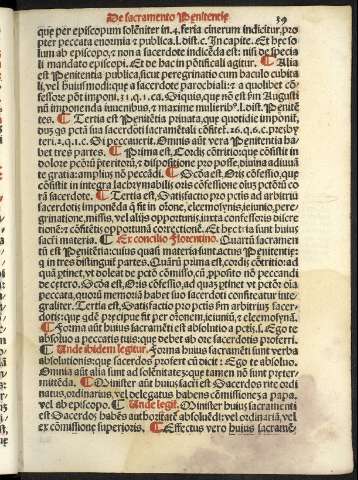 De sacramento Penitentie
39
que per episcopum solēniter in .4. feria cinerum indicitur, pro
pter peccata enormia & publica. l. dist. c. In capite. Et hec so
lum ab episcopo, & non a sacerdote indicēda est: nisi de specia
li mandato episcopi. Et de hac in pōtificali agitur. ¶ Alia
est Penitentia publica, sicut peregrinatio cum baculo cubita
li, vel huiusmodi: que a sacerdote parochiali: & a quolibet cō
fessore pōt imponi. 31. q. 1. ca. Siquis, que nō est fm Augusti
nū imponenda iuuenibus, & maxime mulieribº. l. dist. Penitē
tes. ¶ Tertia est Penitētia priuata, que quotidie imponit̄,
dum qs pctā sua sacerdoti sacramētali cōfitet̄. 26. q. 6. c. presby
teri. & q. 1. c. Si peccauerit. Omnis aūt vera Penitentia ha
bet tres partes. ¶ Prima est. Cordis cōtritio: que cōsistit in
dolore pctōrū pteritorū, & dispositione pro posse, diuina adiuuā
te gratia: amplius nō peccādi. ¶ Scďa est, Oris cōfessio, que
cōsistit in integra lachrymabilis oris cōfessione oīuȝ pctōrū co
rā sacerdote. ¶ Tertia est, Satisfactio pro pctis ad arbitriū
sacerdotis imponēda q̄ fit in oŕone, eleemosynis, ieiunio, pere/
grinatione, missis, vel alijs opportunis, iuxta confessoris discre
tionē: & confitētis opportunā correctionē. Et hec tria sunt huius
sacrī materia. ¶ Ex concilio Florentino. Quartū sacramen
tū est Penitētia: cuius quasi materia sunt actus Penitentis:
q in tres distinguūt̄ partes. Quarū prima est, cordis cōtritio: ad
quā ptinet, vt doleat de pctō cōmisso, cū pposito nō peccandi
de cętero. Scďa est, Oris cōfessio, ad quaȝ ptinet vt pctōr oīa
peccata, quorū memoriā habet suo sacerdoti confiteatur inte/
graliter. Tertia est, Satisfactio pro pctis fm arbitriuȝ sacer/
dotis: que qdē precipue fit per orōnem, ieiuniū, & eleemosynā.
¶ Forma aūt huius sacramēti est absolutio a pctis. s. Ego te
absoluo a peccatis tuis: que debet ab ore sacerdotis proferri.
¶ Unde ibidem legitur. Forma huius sacramēti sunt verba
absolutionis: que sacerdos profert cū dicit: Ego te absoluo.
Omnia aūt alia sunt ad solēnitatē: & que tamen nō sunt preter/
mittēda. ¶ Minister aūt huius sacrī est Sacerdos rite ordi
natus, ordinarius, vel delegatus habens cōmissionē a papa,
vel ab episcopo. ¶ Unde legit̄. Minister huius sacramenti
est Sacerdos habēs authoritatē absoluēdi: vel ordinariā, vel
ex cōmissione superioris. ¶ Effectus vero huius sacramē/